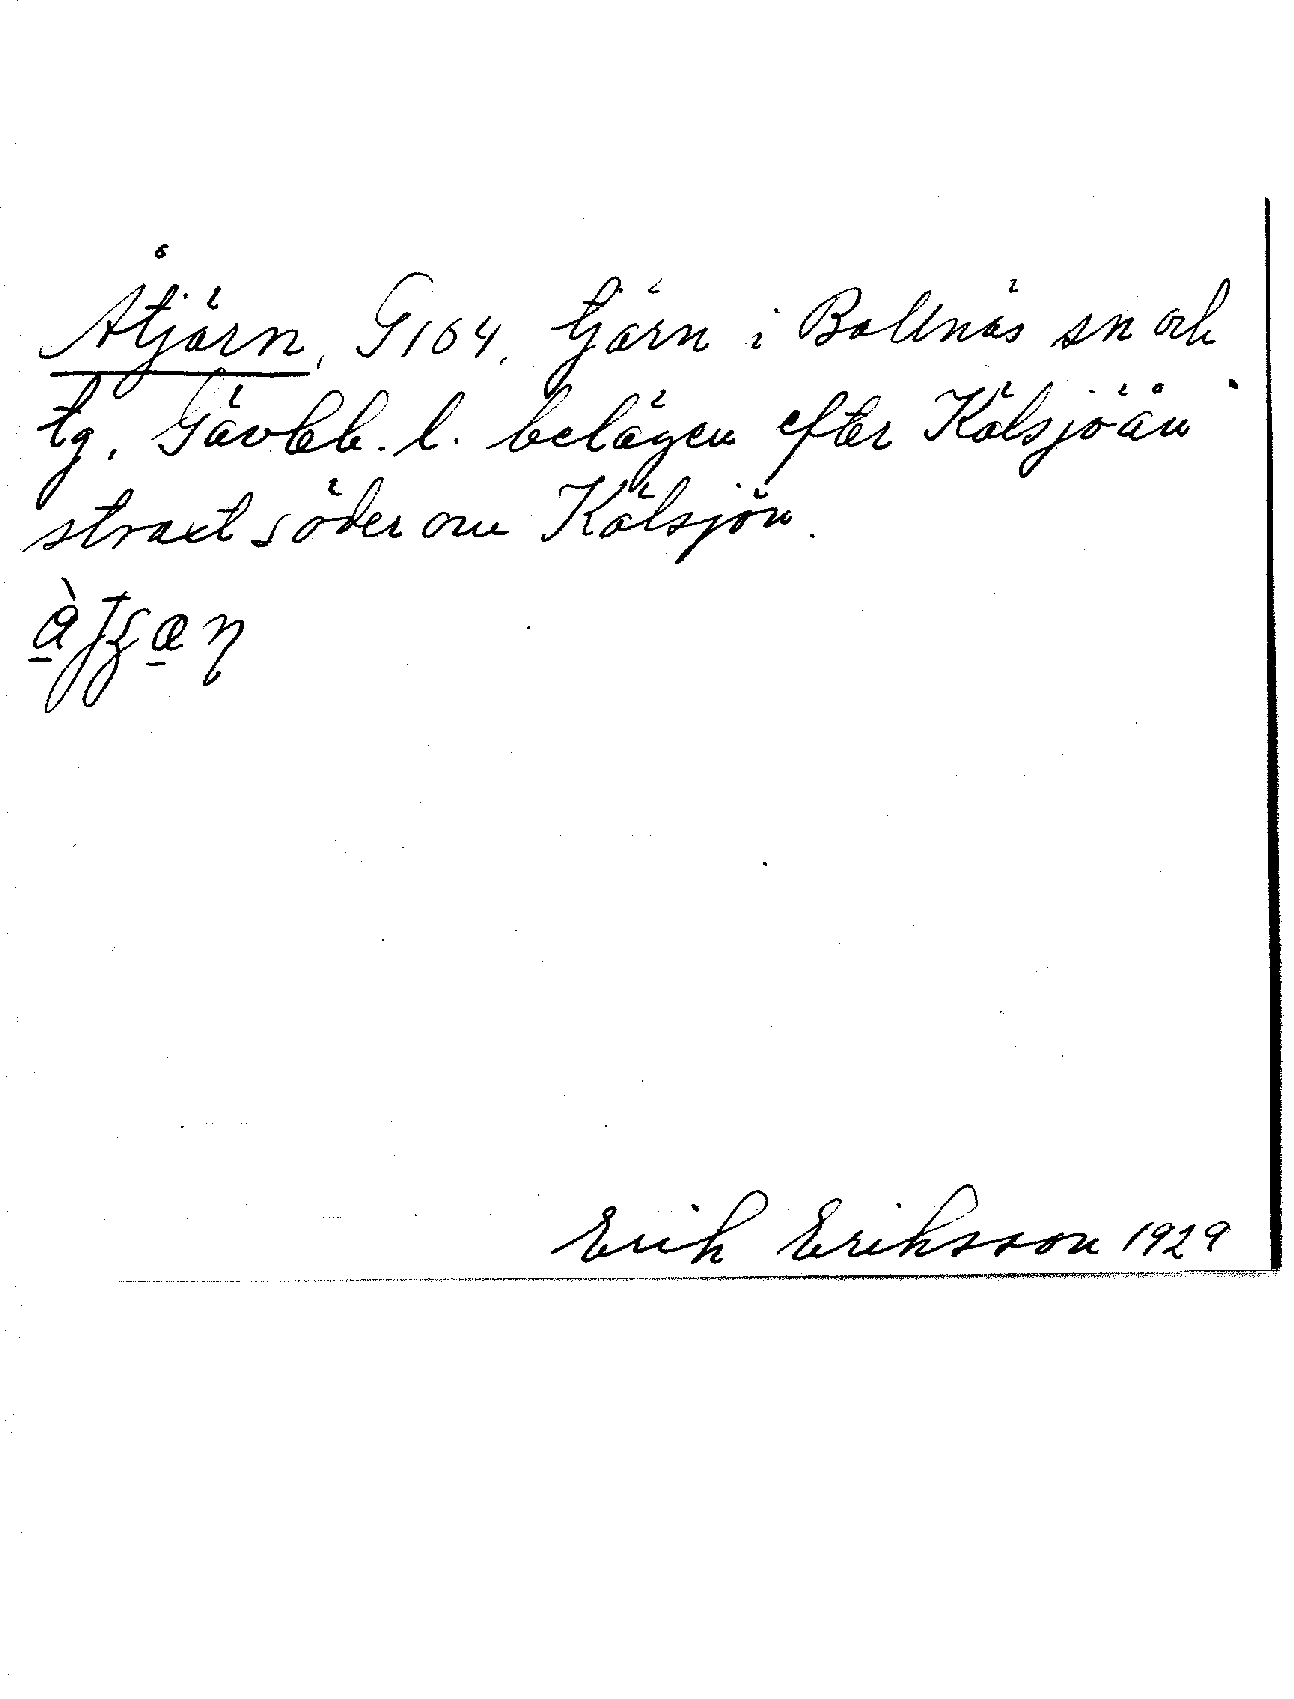 Åtjärn, G104, tjärn i Bollnäs sn och
tg, Gävleb. l. belägen efter Kälsjöån
straxt söder om Kälsjön.
Erik Eriksson 1929